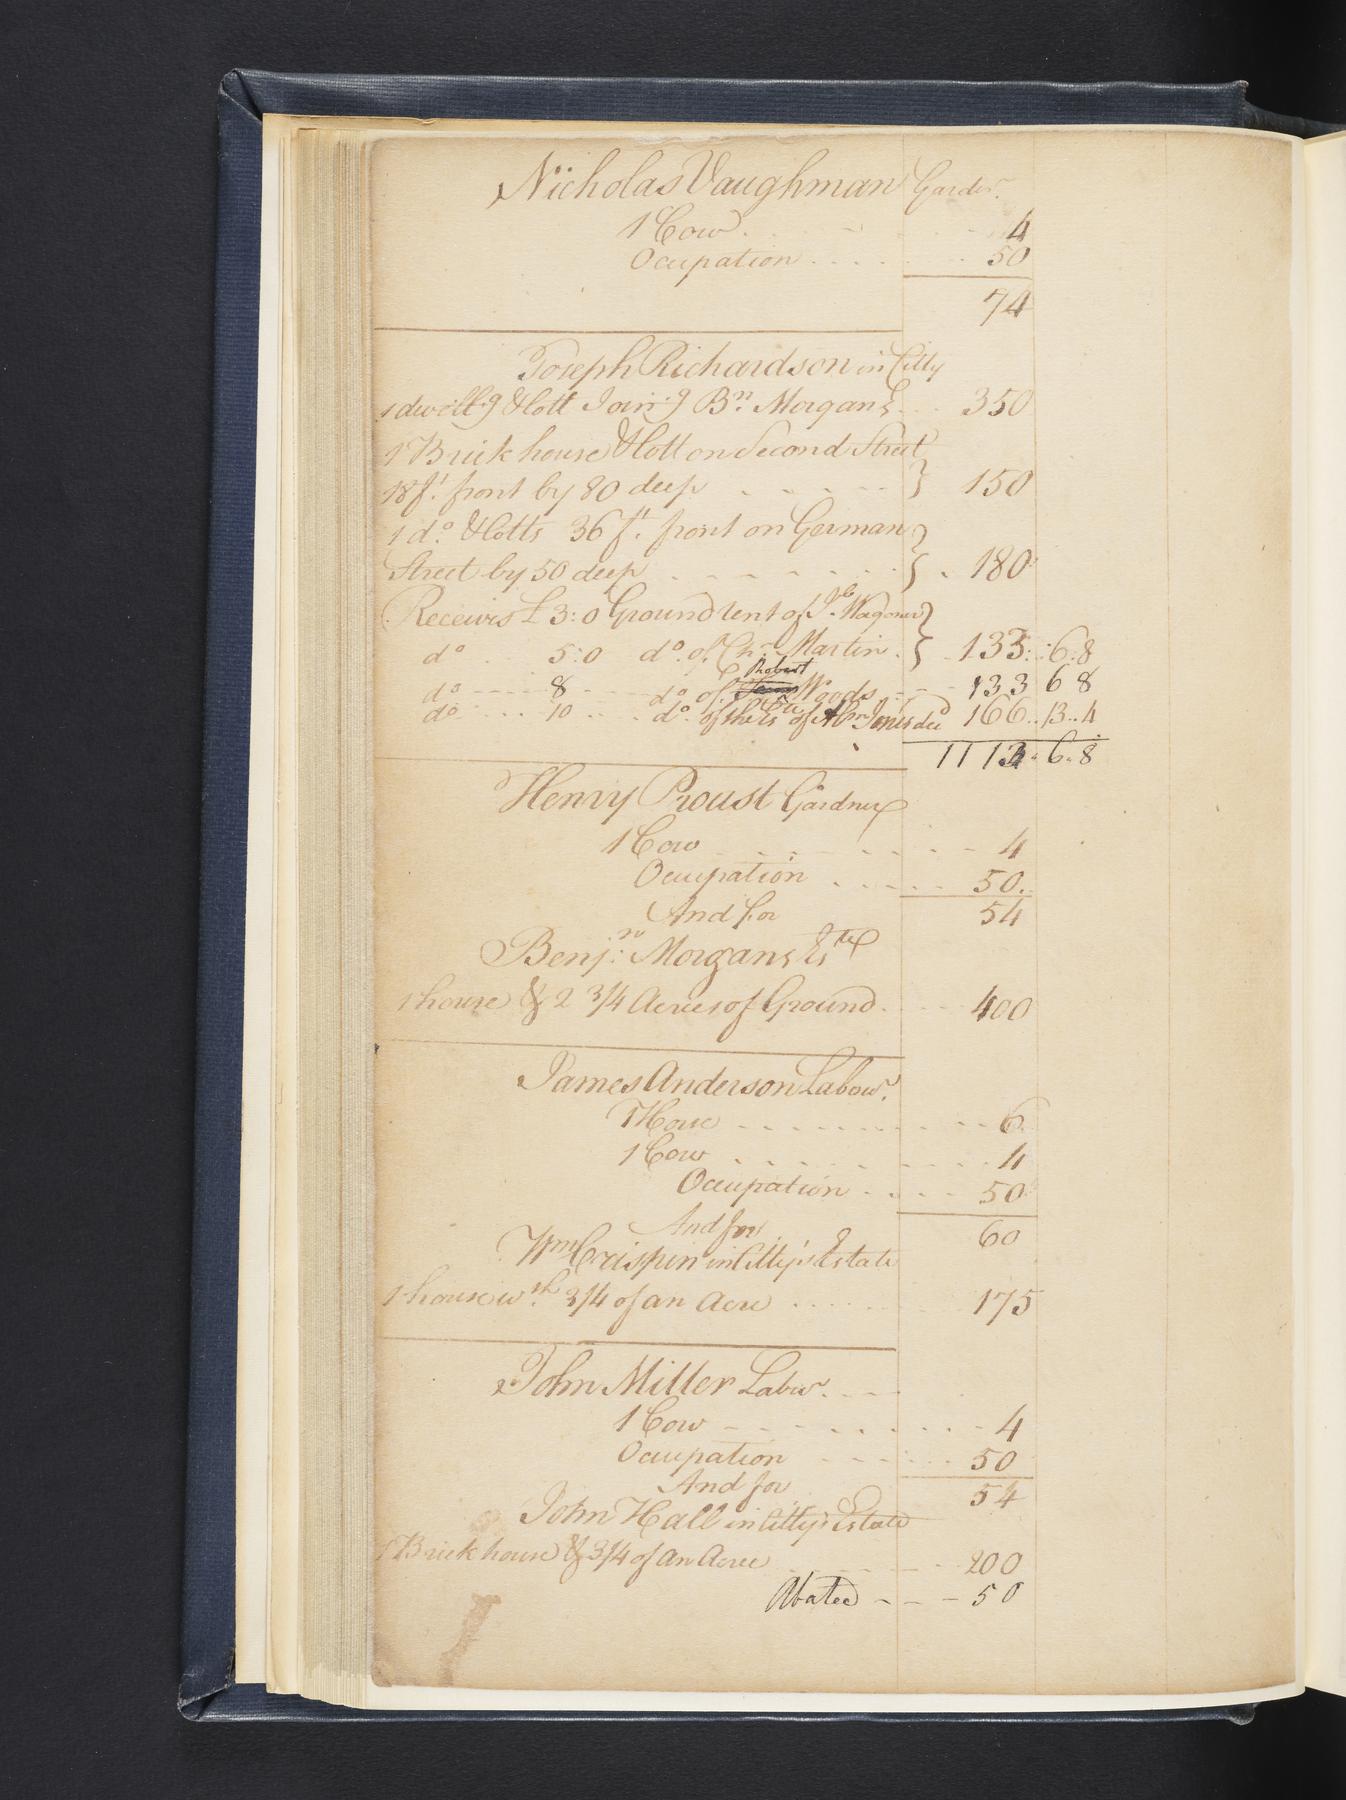 Nicholas Vaughman Gardr.
1 Cow 4
Ocupation 50
74
Joseph Richardson in Citty
1 dwellg & lott Joing Bn. Morgans 350
1 Brick house & lott on Second Street
18 ft. front by 80 deep } 150
1 do. & Lotts 36 ft. front on German
Street by 50 deep } 180
Receives £3:0 Ground rent of Jb. Wagoner
do 5:0 do. of Chr. Martin } 133:6:8
Robert
do 8 do. of Woods 133 6 8
do 10 do. of the Es of Abm Jones decd 166..13..4
1113.6.8
Henry Proust Gardner
1 Cow 4
Occupation 50.
And for 54
Benjn. Morgans Este
1 house & 2 3/4 Acres of Ground 400
James Anderson Labour.
1 Horse 6
1 Cow 4
Occupation 50
And for 60
Wm Crispin in Citty's Estate
1 house wth. 3/4 of an Acre 175
John Miller Labr.
1 Cow 4
Occupation 50
And for 54
John Hall in Citty's Estate
1 Brick house & 3/4 of an Acre 200
Abated 50